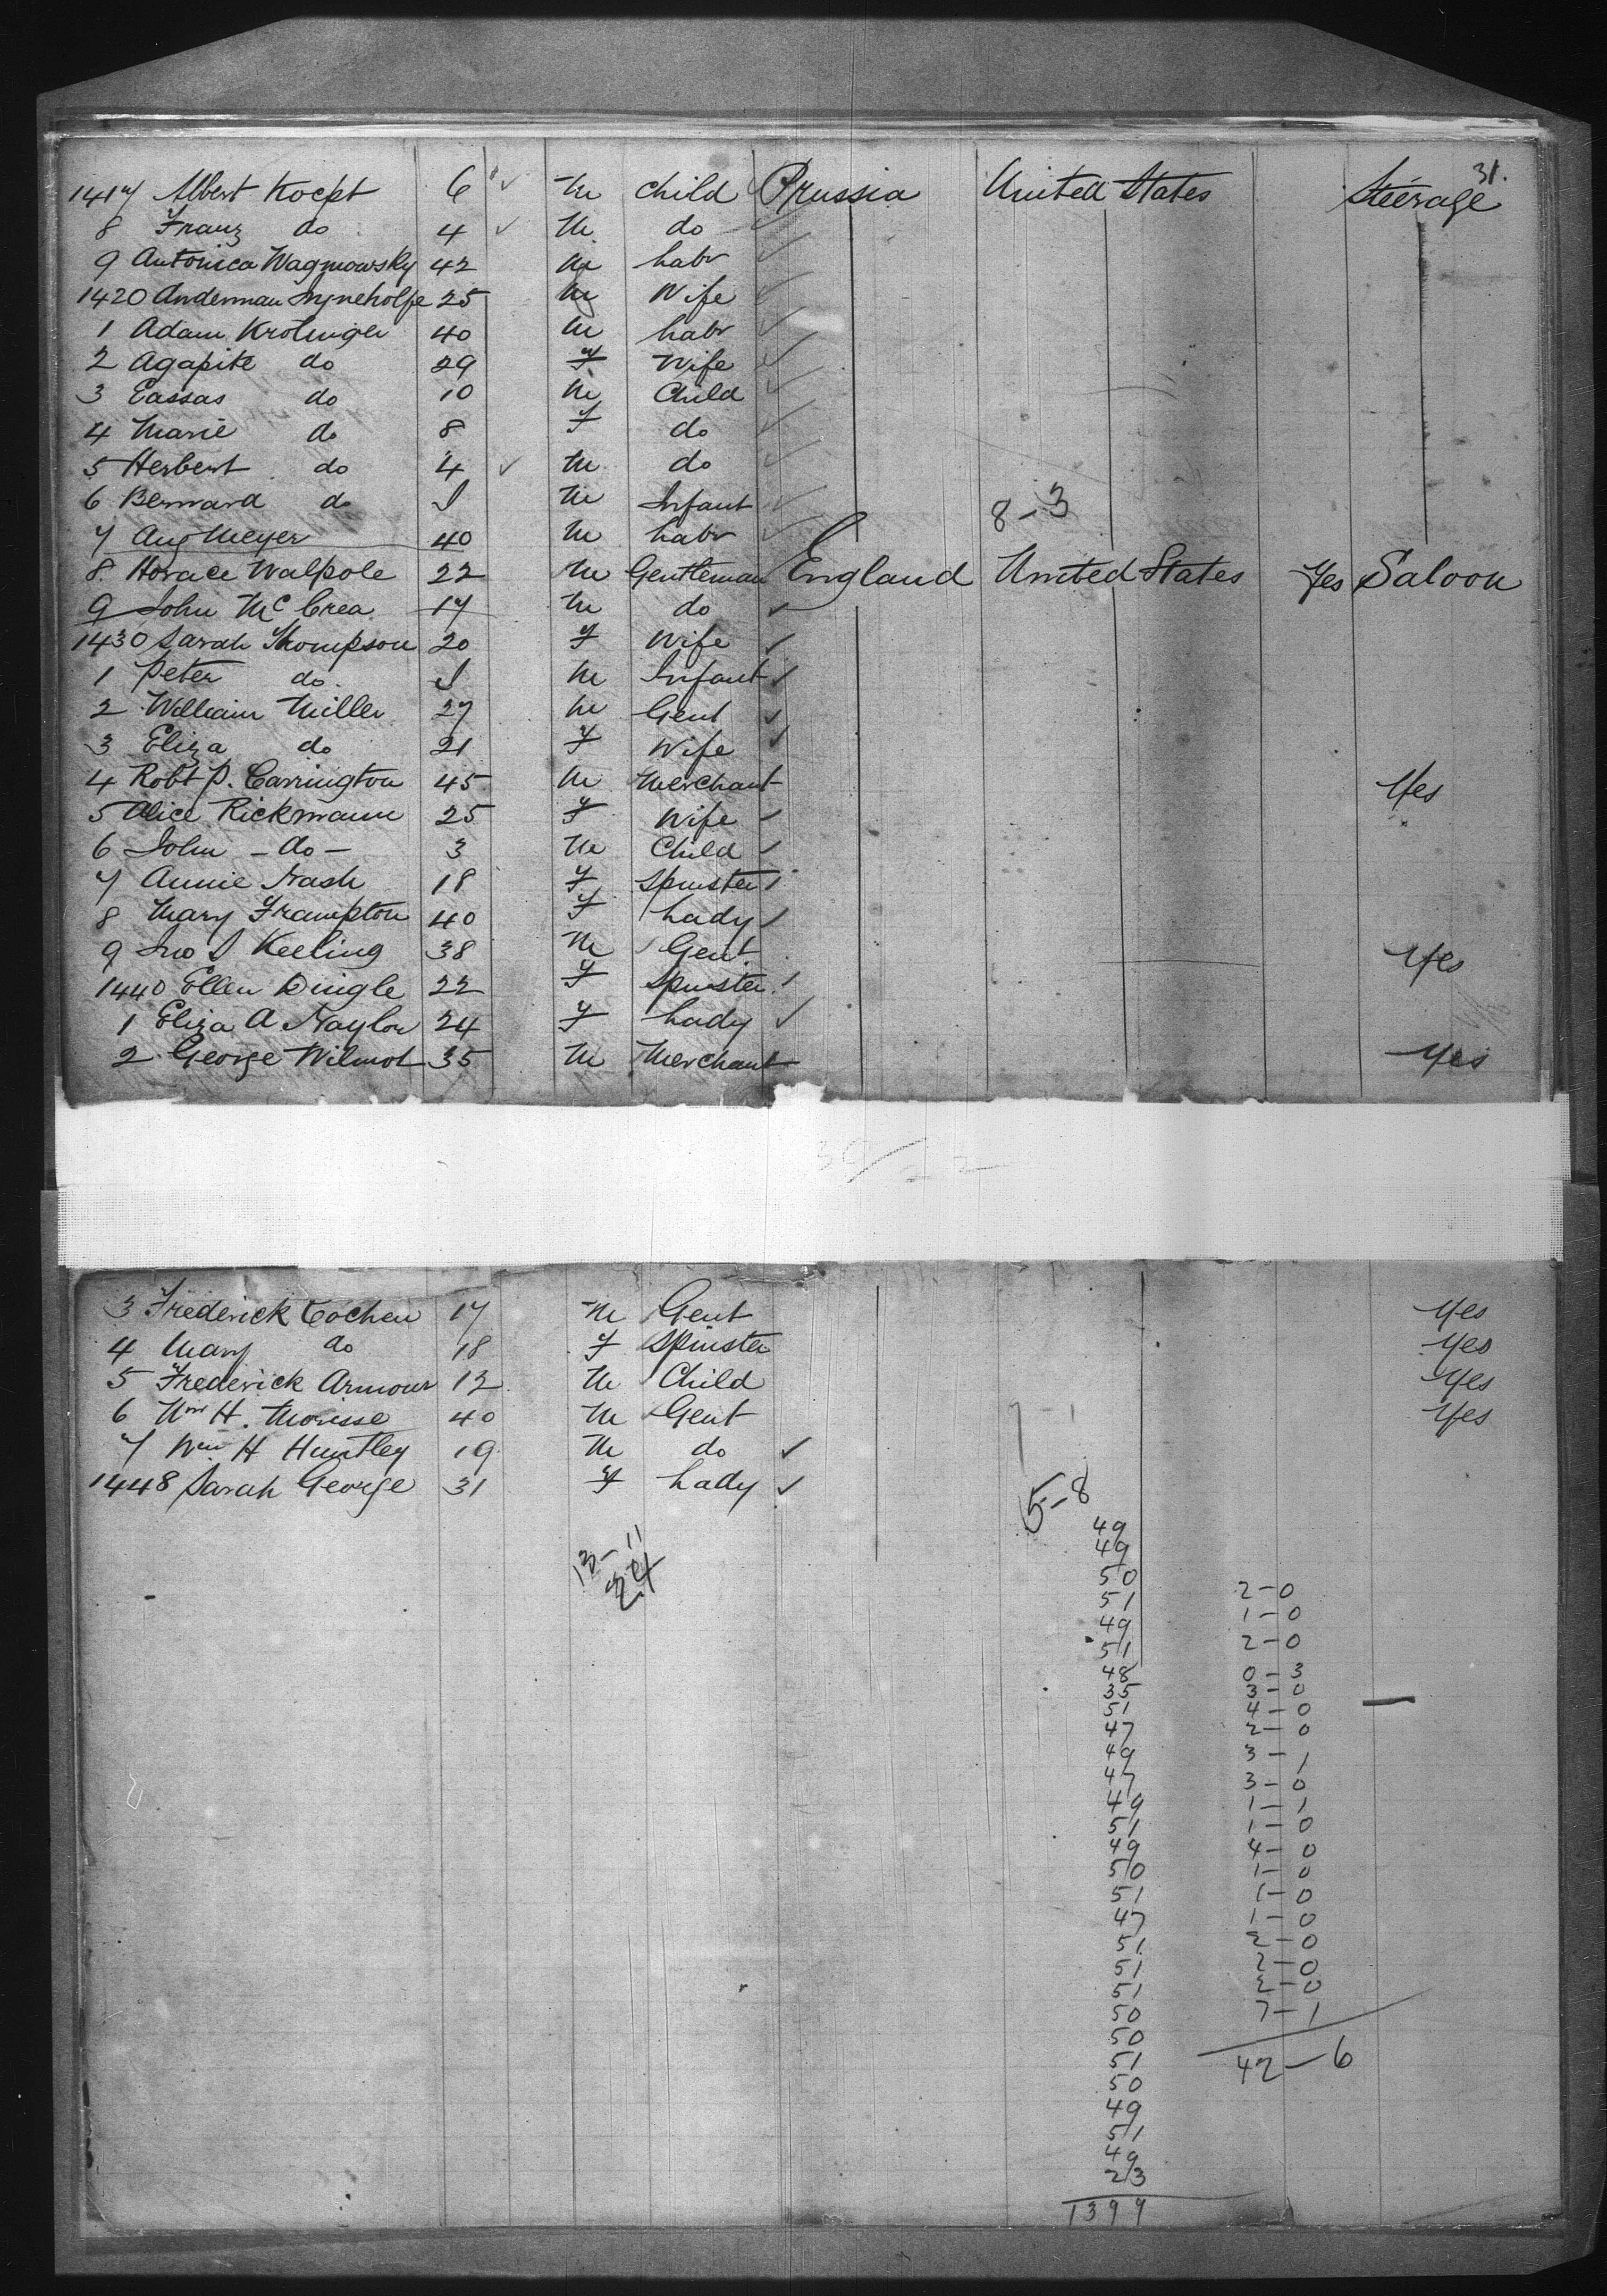 31.
1417 Albert Koept 6 m Child Prussia United States Steerage
8 Franz do 4 m do
9 Antonica Wagmowsky 42 m Labr
1420 Anderman 25 Wife
1 Adam Krolinger 40 m Labr
2 Agapite do 29 f Wife
3 Cassas do 10 m Child
4 Marie do 8 f do
5 Herbert do 4 m do
6 Bernard do I m Infant
8-3
7 Aug Meyer 40 m Labr
8 Horace Walpole 22 m Gentleman England United States Yes Saloon
9 John McCrea 17 m do
1430 Sarah Thompson 20 f Wife
1 Peter do I m Infant
2 William Miller 27 m Gent
3 Eliza do 21 f Wife
4 Robt P. Carrington 45 m Merchant Yes
5 Alice Rickmann 25 f Wife
6 John - do - 3 m Child
7 Annie Nash 18 f Spinster
8 Mary Frampton 40 f Lady
9 Jno I Keeling 38 m Gent Yes
1440 Ellen Dingle 22 f Spinster
1 Eliza A Naylor 24 f Lady
2 George Wilmot 35 m Merchant Yes
3 Frederick Cochen 17 m Gent Yes
4 Mary do 18 f Spinster Yes
5 Frederick Armour 12 m Child Yes
6 Wm H. Morisse 40 m Gent Yes
7-1
7 Wm H Huntley 19 m do
1448 Sarah George 31 f Lady
5-8
13-11
24
49
49
50
51 2-0
49 1-0
51 2-0
48 0-3
35 3-0
51 4-0
47 2-0
49 3-1
47 3-0
49 1-1
51 1-0
49 4-0
50 1-0
51 1-0
47 1-0
51 2-0
51 2-0
51 2-0
50 7-1
50
51 42-6
50
49
51
49
23
1399